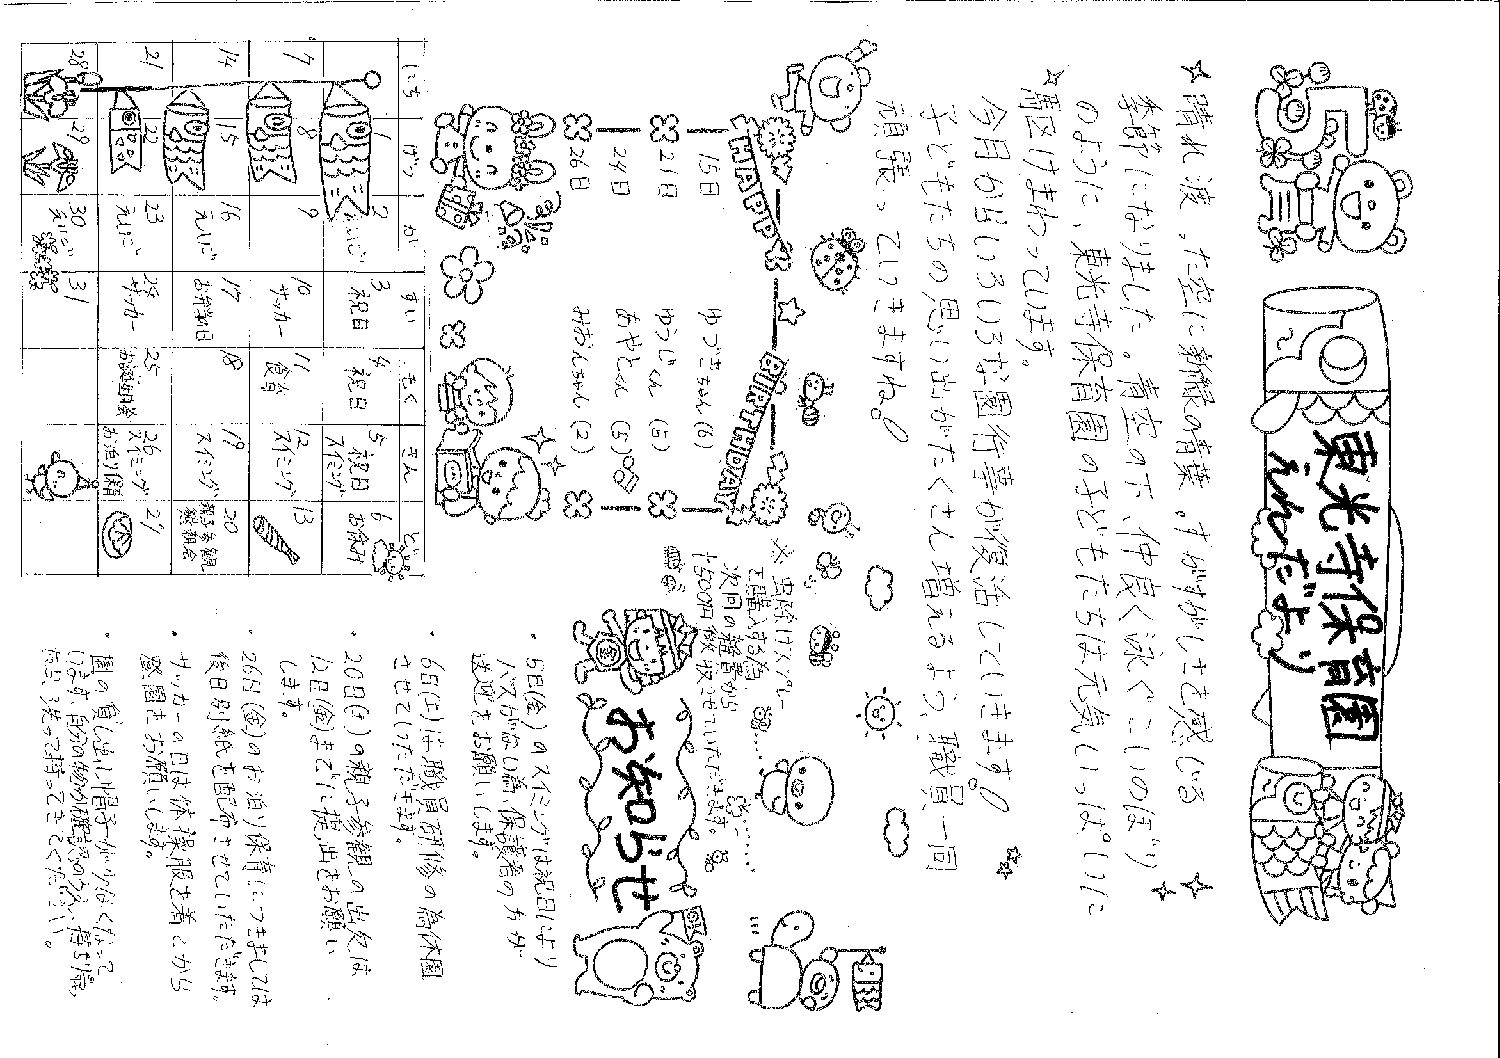 5月
東光寺保育園
えんだより
晴れ渡った空に新緑の青葉。すがすがしさを感じる
季節になりました。青空の下、仲良く泳ぐこいのぼり
のように、東光寺保育園の子どもたちは元気いっぱいに
青区けまわっています。
今月からいろいろな園行事が復活していきます!
子どもたちの思い出がたくさん増えるよう、職員一同
頑張っていきますね!
HAPPY BIRTHDAY
15日 ゆづきちゃん (6)
21日 ゆうじくん (5)
24日 あやとくん (5)
26日 みおんちゃん (2)
※ 虫除けスプレー
を購入する為
次回の雑費から
500円徴収させていただきます。
お知らせ
・5日(金)のスイミングは祝日により
バスが出ない為、保護者の方が
送迎をお願いします。
・6日(土)は職員研修の為休園
させていただきます。
・20日(土)の親子参観の出欠は
12日(金)までに提出をお願い
します。
・26日(金)のお泊り保育につきましては
後日別紙を配布させていただきます。
・サッカーの日は体操服を着てから
登園をお願いします。
・園の貸し出し帽子が少なくなって
います。自分の物か確認のうえ、
洗って持ってきてください。
にち げつ か すい もく きん ど
1 2 えいご 3 祝日 4 祝日 5 祝日 スイミング 6 お休み
7 8 9 10 サッカー 11 食育 12 スイミング 13
14 15 16 えいご 17 お弁当日 18 19 スイミング 20 親子参観 親睦会
21 22 23 えいご 24 サッカー 25 お誕生日会 26 スイミング お泊り保育 27
28 29 30 えいご 31